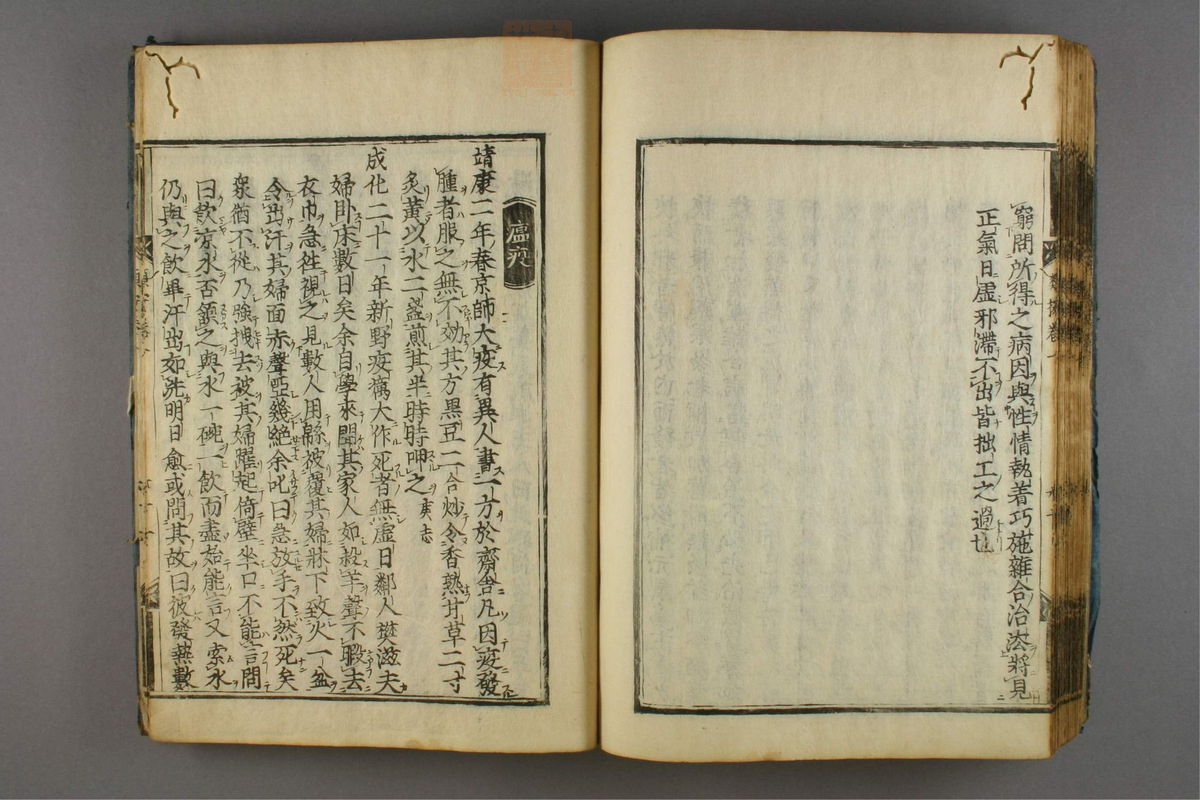 窮問所得之病因與性情執着巧施雜合治法將見
正氣日虛邪滯不出皆拙工之過也
瘟疫
靖康二年春京師大疫有異人書一方於齋舍凡因疫發
腫者服之無不効其方黒豆二合炒令香熟甘草二寸
炙黃以水二盞煎其半時時呷之 夷志
成化二十一年新野疫癘大作死者無虛日鄰人樊滋夫
婦卧床數日矣余自學來聞其家人如殺羊聲不暇去
衣巾急徃視之見數人用綿被覆其婦牀下致火一盆
令出汗其婦面赤聲啞幾絶余叱曰急放手不然死矣
衆猶不從乃強拽去被其婦躍起倚壁坐口不能言問
曰飲凉水否頷之與水一碗一飲而盡始能言又索水
仍與之飲畢汗出如洗明日愈或問其故曰彼發熱數